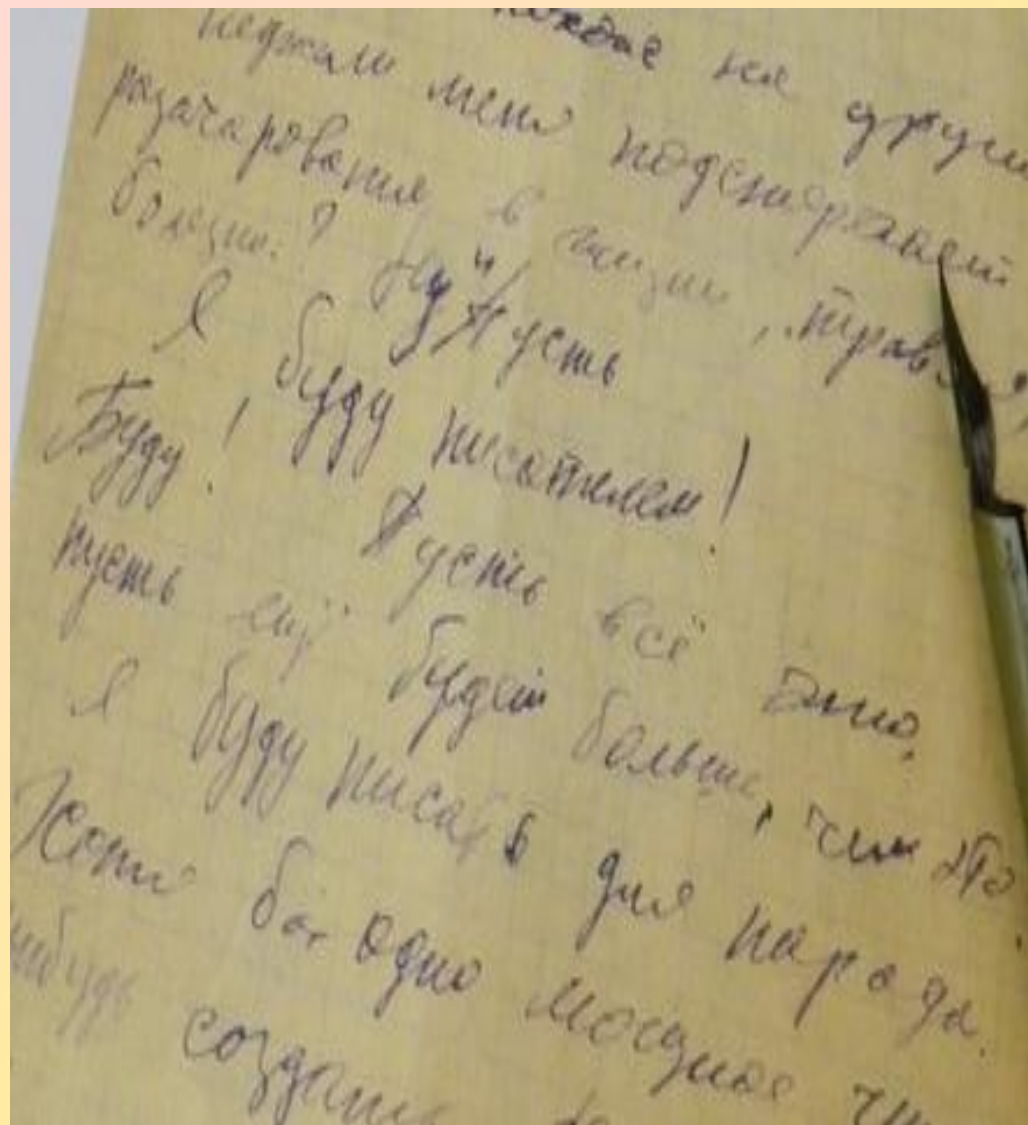 похоже на други
Неужели меня подстерегает
разочарование в жизни, травля,
болезни? Ну и пусть
Я буду писателем!
Буду! Пусть всё это,
пусть ещё будет больше, чем это.
Я буду писать для народа.
Хотя бы одно мощное что
нибудь создать